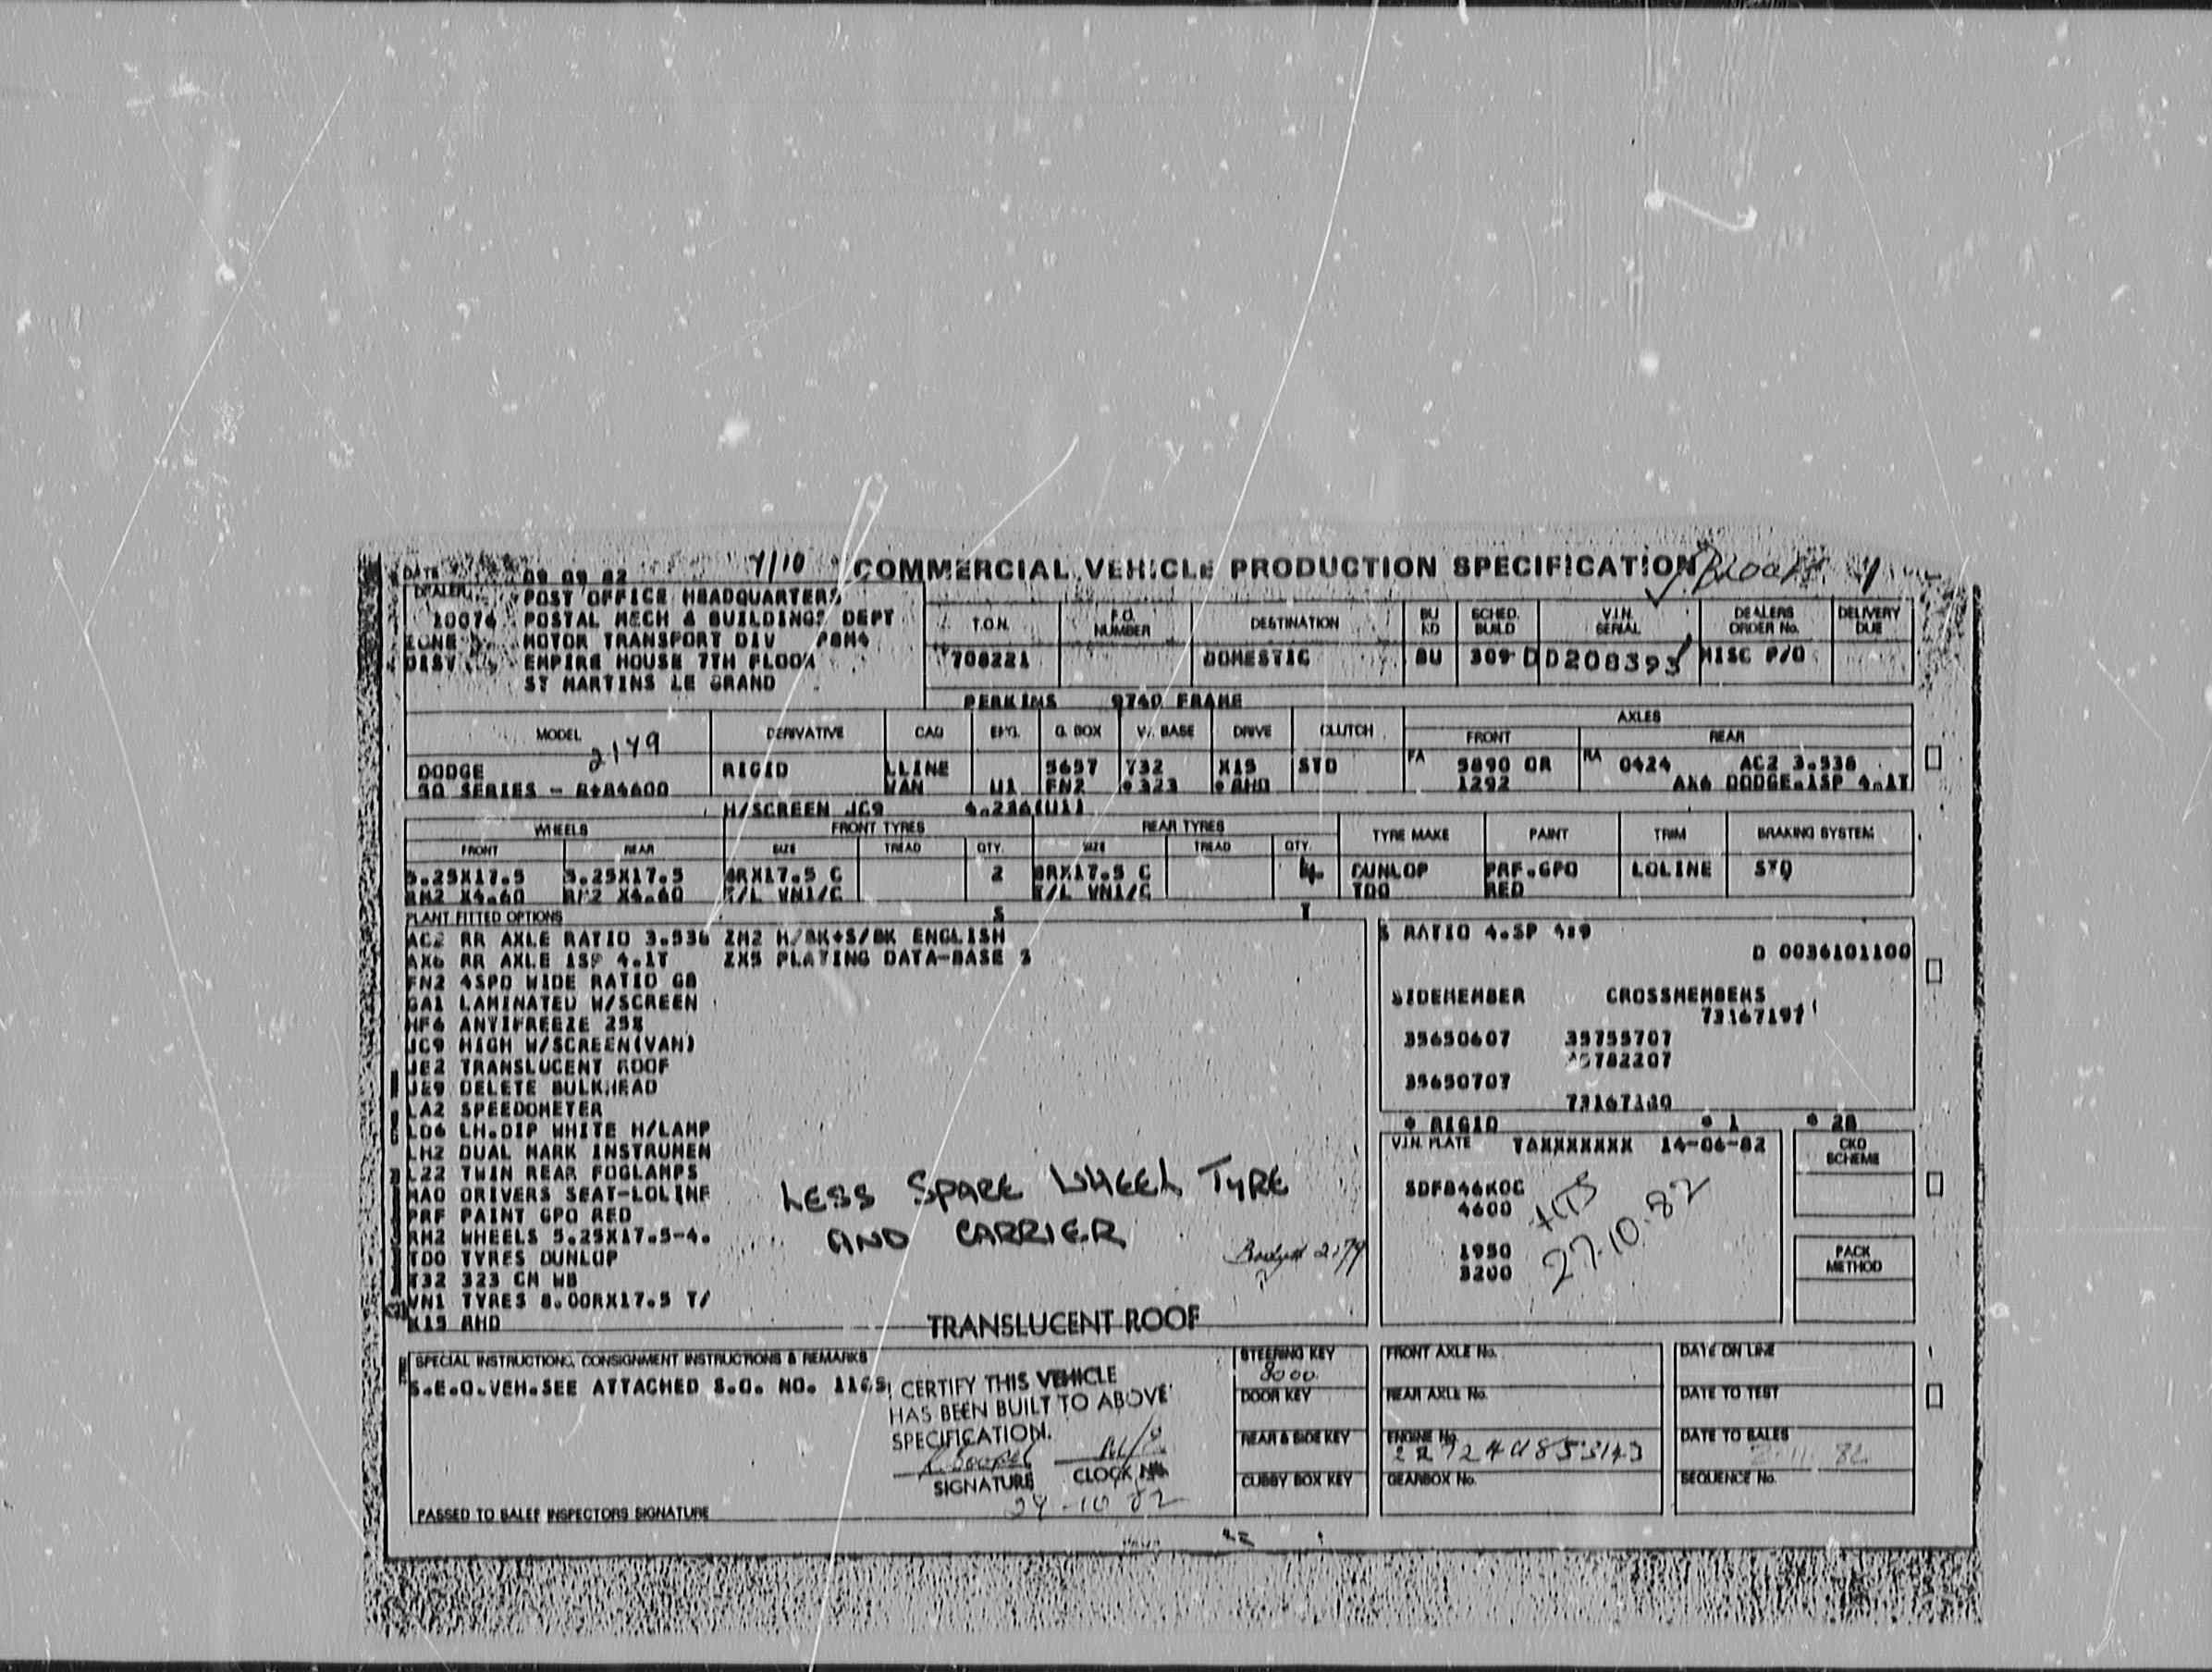 DATE 09 09 82 COMMERCIAL VEHICLE PRODUCTION SPECIFICATION
DEALER POST OFFICE HEADQUARTERS
10074 POSTAL MECH & BUILDINGS DEPT
ZONE MOTOR TRANSPORT DIV PBM4
DIST EMPIRE HOUSE 7TH FLOOR
ST MARTINS LE GRAND
T.O.N. F.O. NUMBER DESTINATION BU KD SCHED. BUILD V.I.N. SERIAL DEALERS ORDER No. DELIVERY DUE
708221 DOMESTIC BU 309 D D208393 MISC P/O
PERKINS 9740 FRAME
MODEL 2149 DERIVATIVE CAB ENG. G. BOX W. BASE DRIVE CLUTCH AXLES
FRONT REAR
DODGE RIGID LLINE 5657 Y32 X15 STD FA 5890 OR RA 0424 AC2 3.538
50 SERIES - VAN U1 FN2 *323 *RHD 1292 AX6 DODGE.1SP 4.1T
H/SCREEN JC9 4.236(U1)
WHEELS FRONT TYRES REAR TYRES TYRE MAKE PAINT TRIM BRAKING SYSTEM
FRONT REAR SIZE TREAD QTY. SIZE TREAD QTY.
5.25X17.5 5.25X17.5 8RX17.5 C 2 8RX17.5 C 4 DUNLOP PRF.GPO LOLINE STD
RM2 X4.60 RM2 X4.60 T/L VN1/C T/L VN1/C TDO RED
PLANT FITTED OPTIONS S T
AC2 RR AXLE RATIO 3.538 ZM2 H/BK+S/BK ENGLISH
AX6 RR AXLE 1SP 4.1T ZX5 PLATING DATA-BASE S
FN2 4SPD WIDE RATIO GB
GA1 LAMINATED W/SCREEN
HF6 ANTIFREEZE 25%
JC9 HIGH W/SCREEN(VAN)
JE2 TRANSLUCENT ROOF
JE9 DELETE BULKHEAD
LA2 SPEEDOMETER
LD6 LH.DIP WHITE H/LAMP
LH2 DUAL MARK INSTRUMEN
L22 TWIN REAR FOGLAMPS
MAO DRIVERS SEAT-LOLINE
PRF PAINT GPO RED
RM2 WHEELS 5.25X17.5-4.
TDO TYRES DUNLOP
Y32 323 CM WB
VN1 TYRES 8.00RX17.5 T/
X15 RHD
LESS SPARE WHEEL TYRE
AND CARRIER
TRANSLUCENT ROOF
S RATIO 4.SP
D 0036101100
SIDEMEMBER CROSSMEMBERS
73167197
35650607 35755707
35782207
35650707
73167180
* RIGID * 1 * 28
V.I.N. PLATE TAXXXXXXX 14-06-82
SDFB46KOC
4600
1950
3200
27.10.82
CKD SCHEME
PACK METHOD
SPECIAL INSTRUCTIONS, CONSIGNMENT INSTRUCTIONS & REMARKS
S.E.O.VEH.SEE ATTACHED S.O. NO. 1165
I CERTIFY THIS VEHICLE
HAS BEEN BUILT TO ABOVE
SPECIFICATION.
SIGNATURE CLOCK No.
29-10 82
PASSED TO SALES INSPECTORS SIGNATURE
STEERING KEY
8000
DOOR KEY
REAR & SIDE KEY
CUBBY BOX KEY
FRONT AXLE No.
REAR AXLE No.
ENGINE No.
GEARBOX No.
DATE ON LINE
DATE TO TEST
DATE TO SALES
SEQUENCE No.